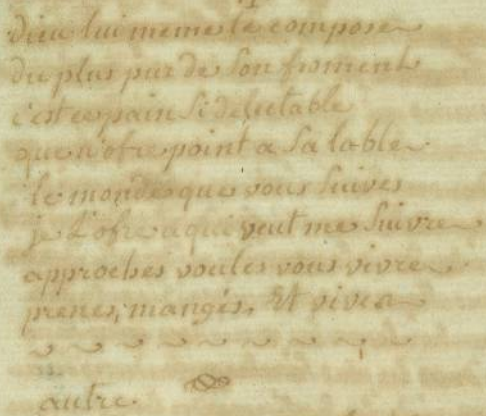 dieu lui meme le compose
du plus pur de son froment
c'est ce pain si delectable
que n'ofre point a sa table
le monde que vous suives
je l'ofre a qui veut me suivre
approches voules vous vivre
prenes, mangés, et vives
autre